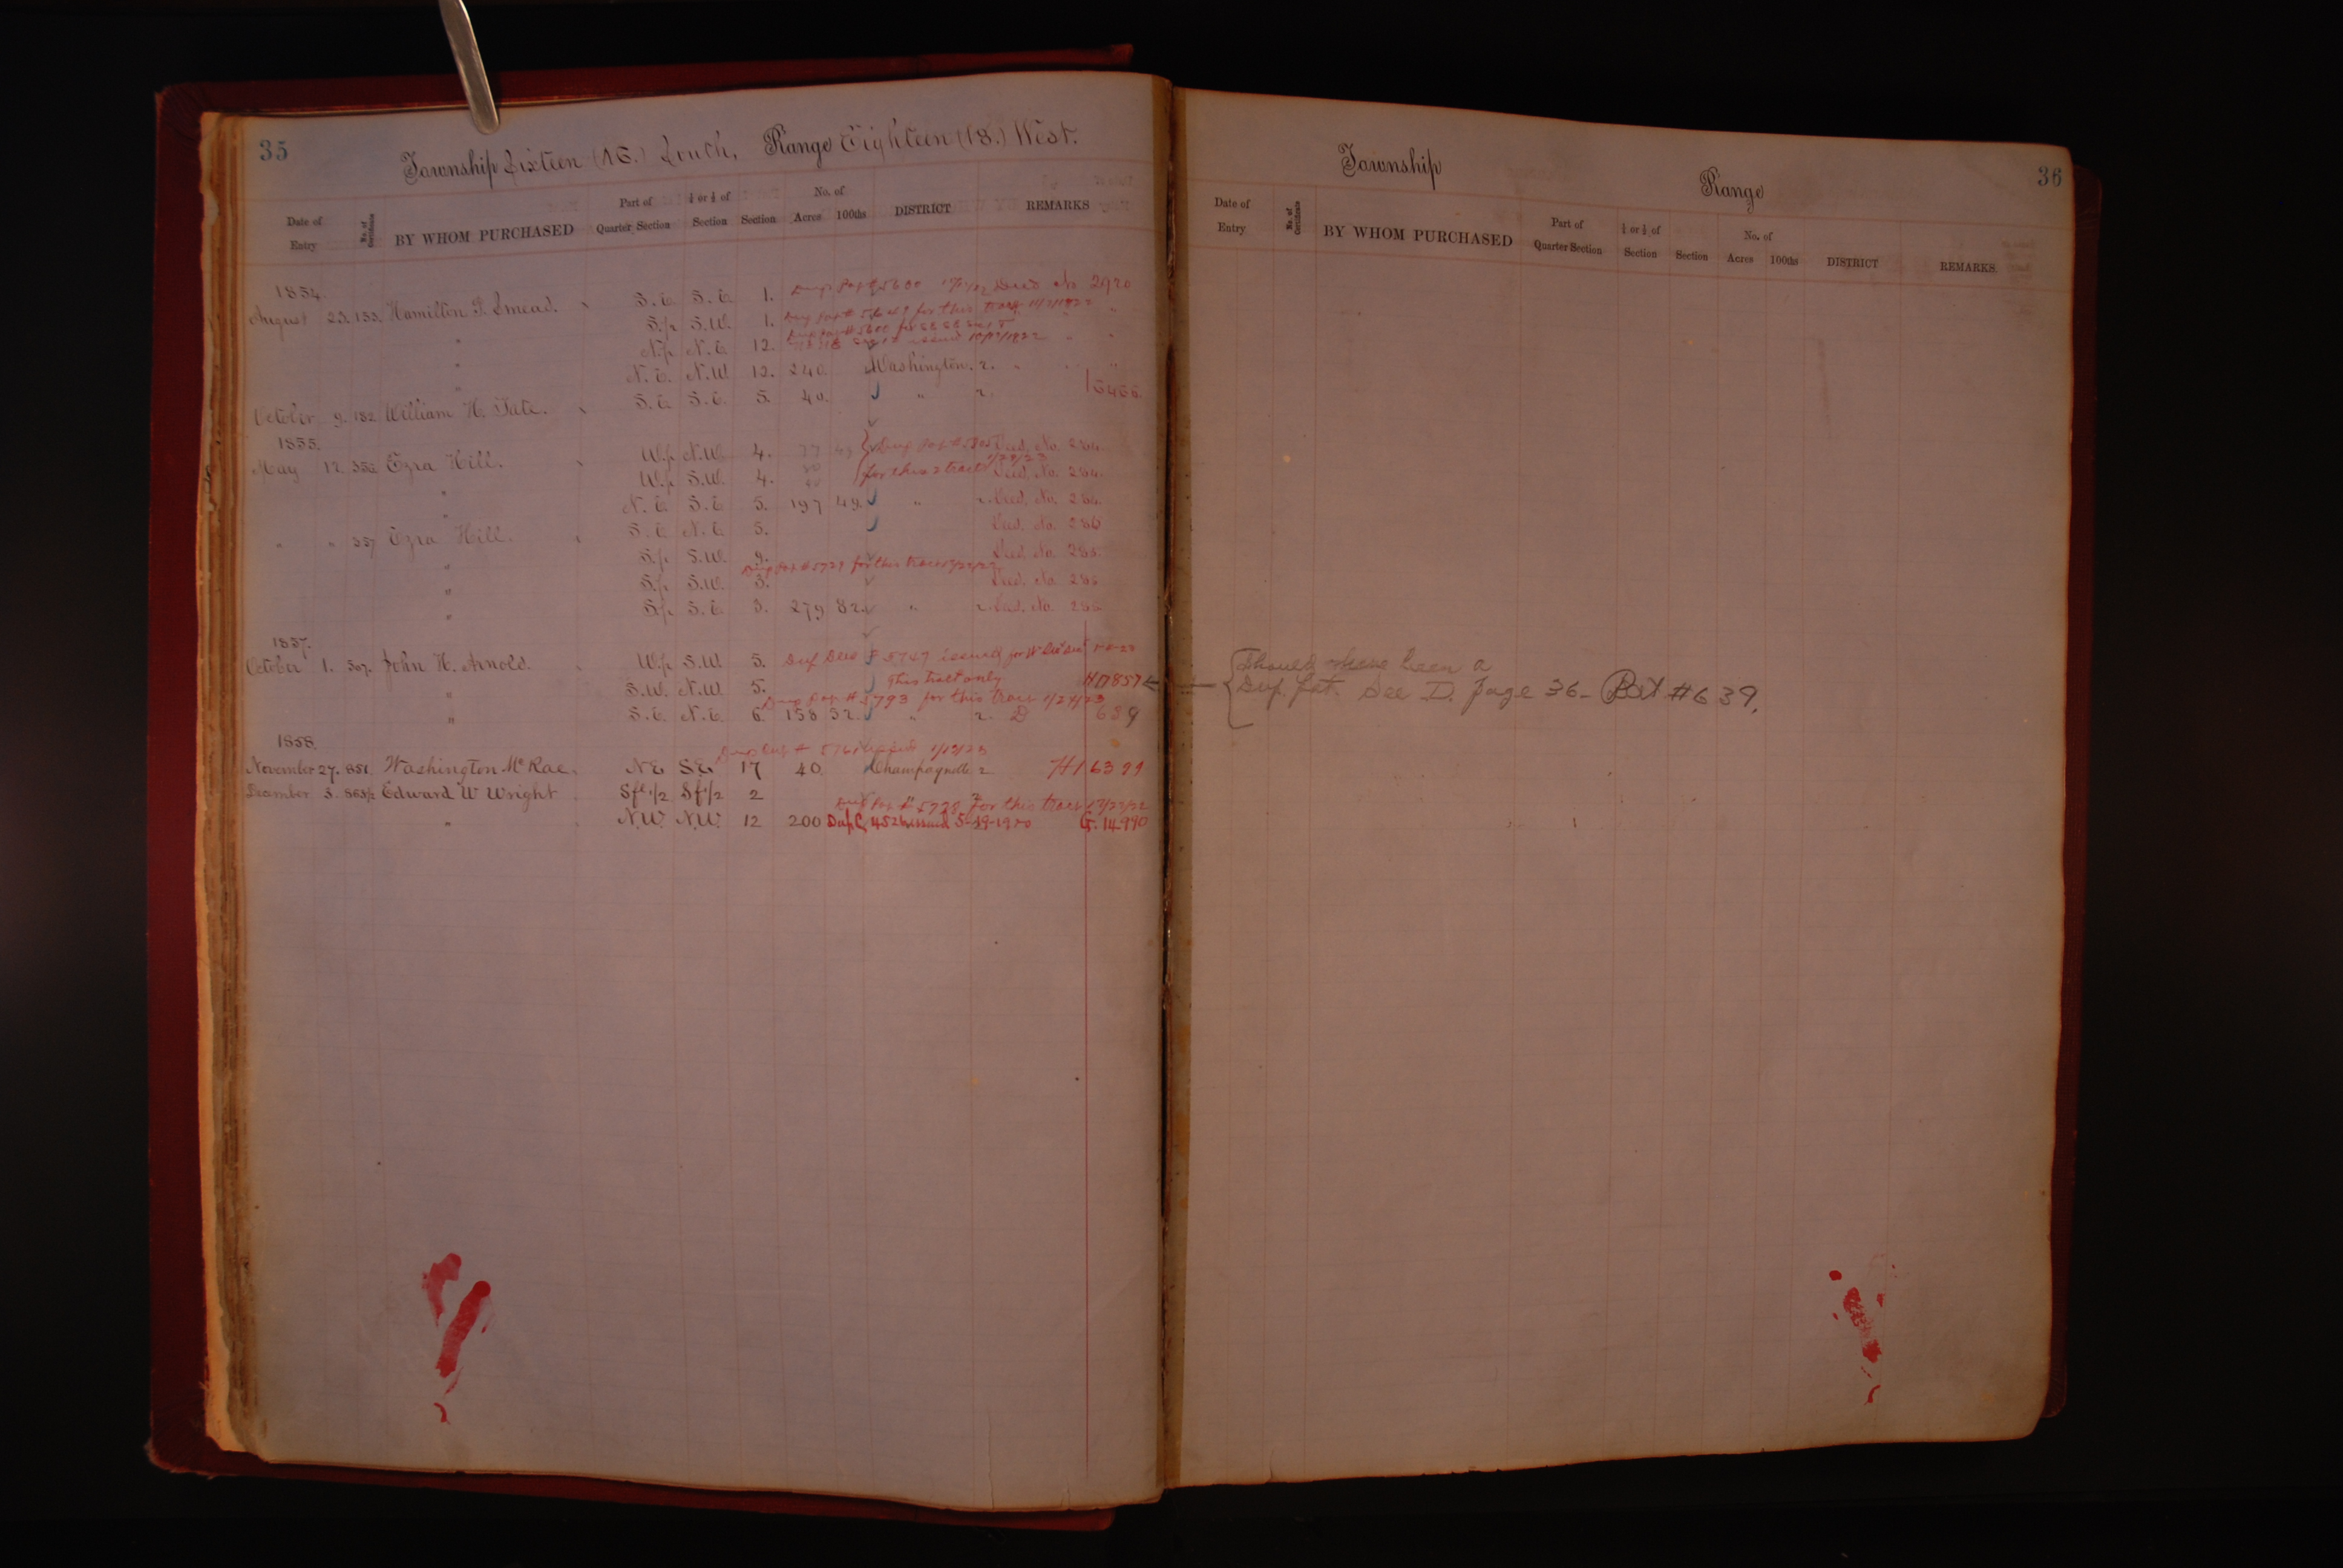 35
Township Sixteen (16.) South, Range Eighteen (18.) West.
Date of Entry No. of Certificate BY WHOM PURCHASED Part of Quarter Section ¼ or ½ of Section Section No. of Acres 100ths DISTRICT REMARKS
1854.
August 23. 153. Hamilton J. Smead. S.E. S.E. 1. Deed No 2920
" S.½ S.W. 1. for this tract 11/2/1922 " "
" N.½ N.E. 12. " "
" N.E. N.W. 12. 240. Washington. 2. " " "
October 9. 182. William H. Tate. S.E. S.E. 5. 40. " 2.
1855.
May 12. 356 Ezra Hill. W.½ N.W. 4. 77 49 Deed. No. 284.
" W.½ S.W. 4. 80 for this 2 tract Deed. No. 284.
" N.E. S.E. 5. 197 49. " 2. Deed. No. 284.
" " 357 Ezra Hill. S.E. N.E. 5. Deed. No. 286
" S.½ S.W. 9. Deed. No. 285.
Dup Pat # 5729 for this tract
" S.½ S.W. 3. Deed. No. 286
" S.½ S.E. 3. 279 82. " 2. Deed. No. 286
1857.
October 1. 507. John H. Arnold. W.½ S.W. 5. Dup Deed # 5747 issued for
this tract only
" S.W. N.W. 5. H D 857
Dup Pat # 5793 for this tract 1/24/23
" S.E. N.E. 6. 158 52. " 2. D 639
1858.
Dup 1/12/23
November 27. 851. Washington McRae. NE SE 17 40 Champagnolle 2 H 1 6399
December 3. 863½ Edward W Wright Sfl½ Sf½ 2
Dup Pat # 5728 for this tract 12/22/22
" N.W. N.W. 12 200 Dup C 452 issued 5-19-1920 G. 14.990
36
Township Range
Date of Entry No. of Certificate BY WHOM PURCHASED Part of Quarter Section ¼ or ½ of Section Section No. of Acres 100ths DISTRICT REMARKS
Should have been a
Dup. Pat. See D. page 36 - Pat #639.